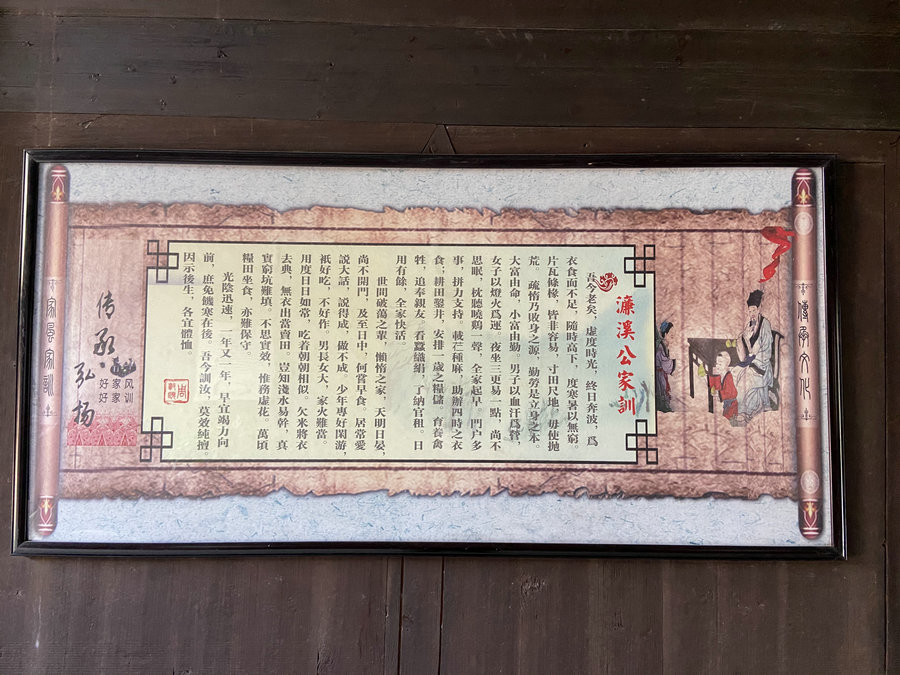 傳承文化
濂溪公家訓
吾今老矣，虛度時光，終日奔波，爲
衣食而不足，隨時高下，度寒暑以無窮。
片瓦條椽，皆非容易，寸田尺地，毋使拋
荒。疏惰乃敗身之源，勤勞是立身之本。
大富由命，小富由勤，男子以血汗爲營，
女子以燈火爲運。夜坐三更易一點，尚不
思眠，枕聽曉鷄一聲，全家起早。門户多
事，拼力支持，栽芒種麻，助辦四時之衣
食；耕田鑿井，安排一歲之糧儲。育養禽
牲，追奉親友，看蠶織絹，了納官租。日
用有餘，全家快活
世間破蕩之輩，懶惰之家，天明日晏，
尚不開門，及至日中，何嘗早食。居常愛
説大話，説得成，做不成，少年專好閑游，
衹好吃，不好作。男長女大，家火難當。
用度日日如常，吃着朝朝相似。欠米將衣
去典，無衣出當賣田。豈知淺水易幹，真
實窮坑難填。不思實效，惟務虛花，萬頃
糧田坐食，亦難保守。
光陰迅速，一年又一年，早宜竭力向
前，庶免饑寒在後。吾今訓汝，莫效純擅。
因示後生，各宜體恤。
传承
弘扬
好家风
好家训
家風家訓